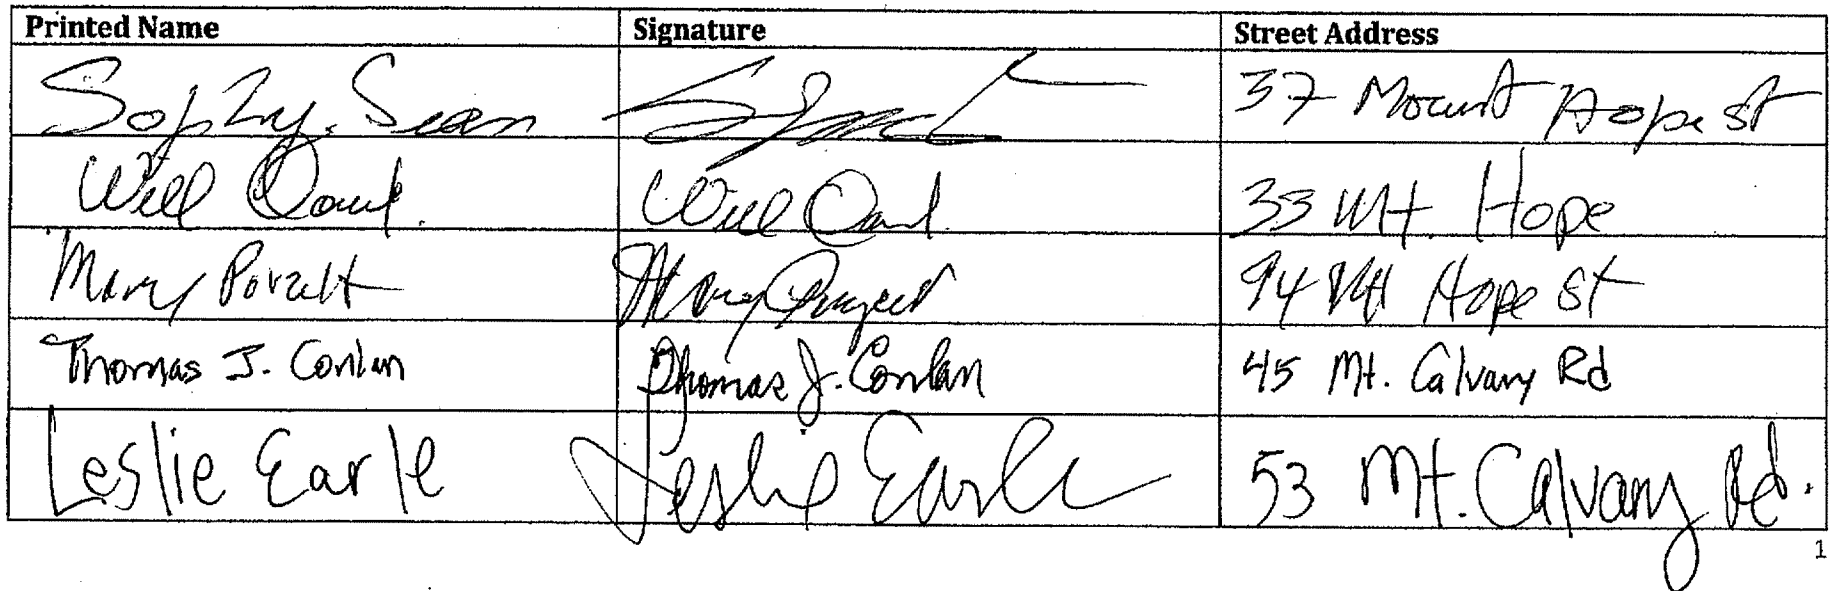 Printed Name Signature Street Address
Sophy Sean 37 Mount Hope st
Will Will 33 Mt. Hope
Mary Mary 94 Mt Hope St
Thomas J. Conlan Thomas J. Conlan 45 Mt. Calvary Rd
Leslie Earle Leslie Earle 53 Mt. Calvary Rd.
1